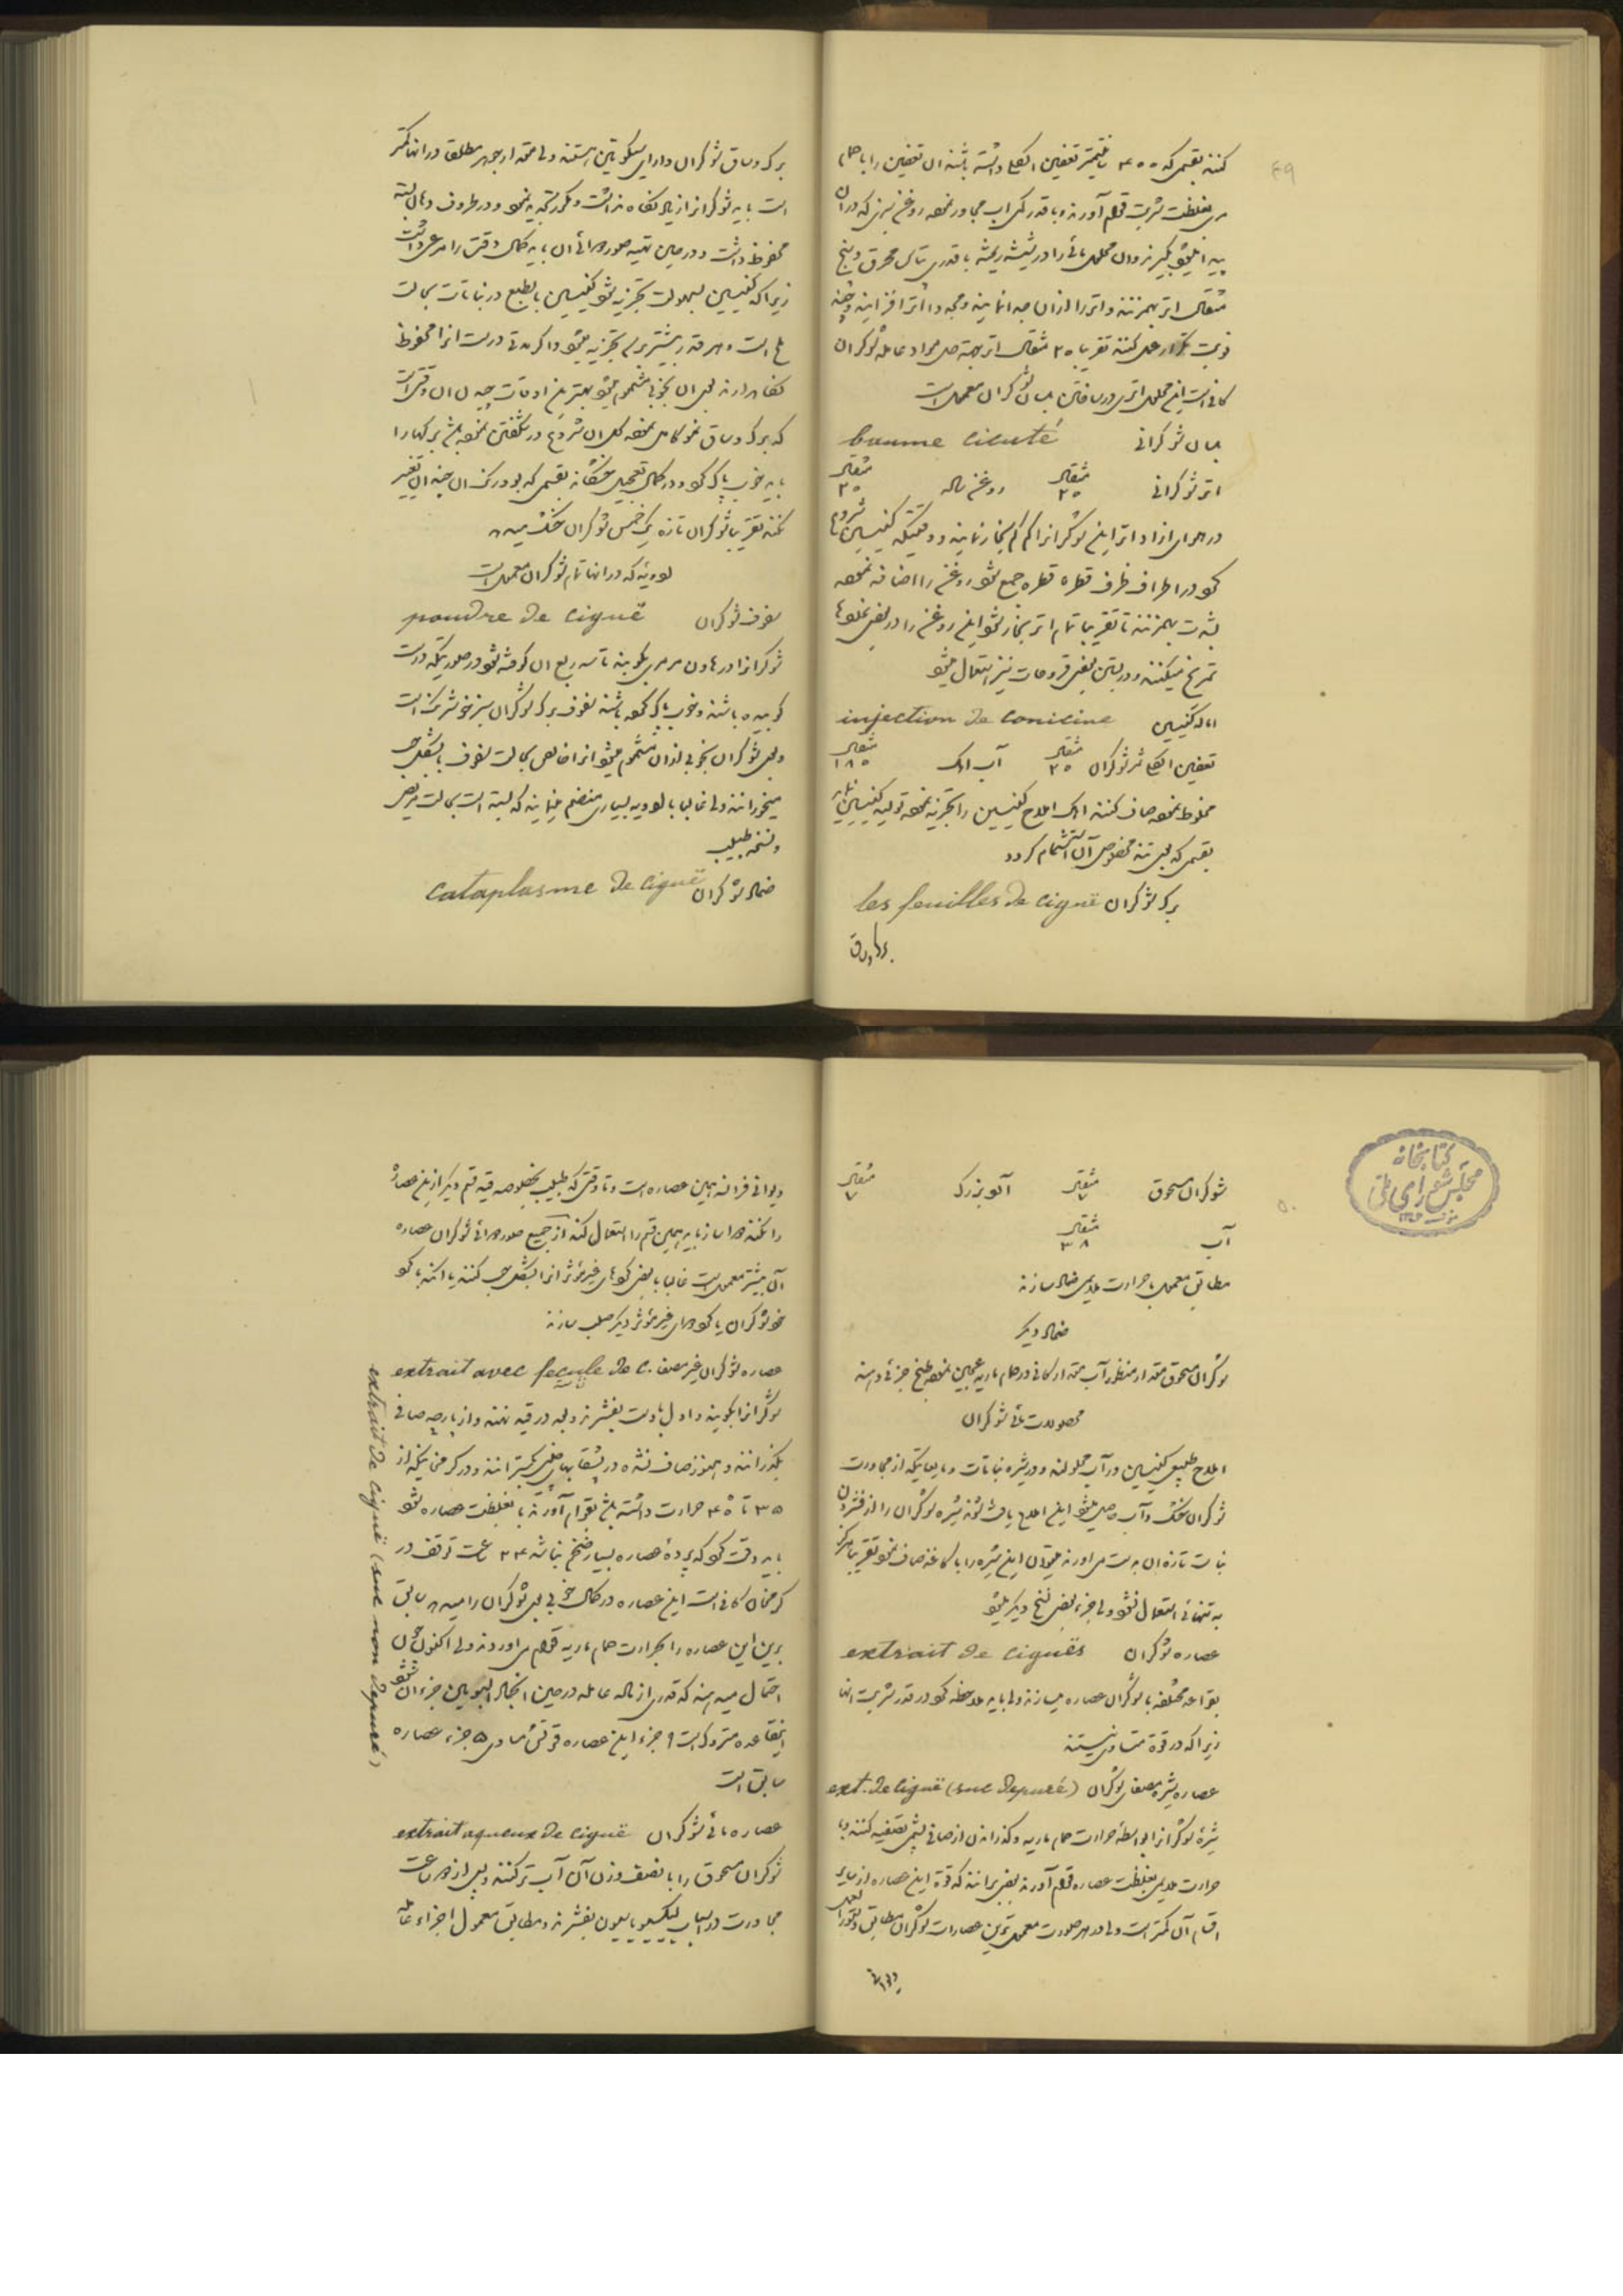 ۴۹
کنند بقسمی که ۴۰۰ سانتیمتر تعفین الکلی داشته باشند ان تعفین را با حمام
مریم بغلظت شربت قوام آورند و با قدر کمی اب مجاور نموده روغن سبزی که دران
مثقال اتر بهمزنند و اتر را ازان جدا نمایند و مجددا اتر افزایند و چند
نوبت تکرار عمل کنند تقریبا ۳۰ مثقال اتر بجهة حل مواد عامله شوکران
کافی است این محلول اتری در ساختن بلسان شوکران معمول است
بلسان شوکرانی baume cicuté
اتر شوکرانی مثقال ۳۰ روغن ساله مثقال ۳۰
در هوای ازاد اتر این شوکرانرا کم کم بخار نمایند و وقتیکه کنیسین شروع
کرد در اطراف ظرف قطره قطره جمع شود روغن را اضافه نموده
بشدت بهمزنند تا تقریبا تمام اتر بخار شود این روغن را در بعض
تمریخ میکنند و در بستن بعضی قروحات نیز استعمال میشود
اماله کنیسین injection de conicine
تعفین الکلی ثمر شوکران مثقال ۳۰ آب اهک مثقال ۱۸۵
مخلوط نموده صاف کنند اهک املاح کنیسین را تجزیه نموده تولید کنیسین مینماید
بقسمی که بوی تند مخصوص آن استشمام گردد
برک شوکران les feuilles de ciguë
برک و ساق
برک و ساق شوکران دارای سیکوتین هستند ولی مقدار جوهر مطلق در انها کمتر
است باید شوکرانرا زیاد نگاه نداشت و مکرر تجدید نمود و در ظروف دهان بسته
محفوظ داشت و در حین تهیه صور دوائی ان باید کمال دقت را مرعی داشت
زیراکه کنیسین بسهولت تجزیه شود کنیسین بالطبع در نباتات بحالت
ملح است و هر قدر بیشتر برای تجزیه میشود و اگر مدتی درست انرا محفوظ
نگاهدارند بوی ان بخوبی مشموم میشود بهترین اوقات چیدن ان وقتی است
که برک و ساق نمو کامل نموده کل ان شروع در شکفتن نموده باشد برکها را
باید خوب پاک کرد و در کمال تعجیل خشکاند بقسمی که بو و رنک ان چندان تغییر
نکند تقریبا شوکران تازه یک خمس شوکران خشک میدهد
ادویه که در انها تمام شوکران معمول است
سفوف شوکران poudre de ciguë
شوکرانرا در هاون مرمری بکوبند تا سه ربع ان کوفته شود در صورتیکه درست
کوبیده باشند و خوب پاک کرده باشند سفوف برک شوکران سبز خوشرنک است
و بوی شوکران بخوبی ازان مشموم میشود انرا خالص بحالت سفوف یا بشکل حب
میخورانند ولی غالبا با ادویه بسیار منضم مینمایند که بسته است بحالت مریض
و نسخه طبیب
ضماد شوکران cataplasme de ciguë
کتابخانه
مجلس شورای ملی
۵۰
شوکران مسحوق مثقال ۷ آلو بزرک مثقال ۷
آب مثقال ۳۸
مطابق معمول با حرارت ملایمی ضماد سازند
ضماد دیکر
شوکران مسحوق مقدار منظور آب مقدار کافی در حمام ماریه عجین نموده طبخ جزئی دهند
محلولات مائی شوکران
املاح طبیعی کنیسین در آب محلولند و در شیره نباتات و مایعاتیکه از مجاورت
شوکران خشک و آب حاصل میشود این املاح یافت شوند شیره شوکران را از فشردن
نبات تازه ان بدست می اورند میتوان این شیره را با کاغذ صاف نمود تقریبا هرکز
به تنهائی استعمال نشود ولی جزء بعضی نسخ دیکر میشود
عصاره شوکران extrait de ciguës
بقواعد مختلفه با شوکران عصاره میسازند ولی باید ملاحظه کرد در قدر شربت انها
زیراکه در قوة متساوی نیستند
عصاره شیره مصفی شوکران ext. de ciguë (suc depuré)
شیره شوکرانرا بواسطه حرارت حمام ماریه و کذراندن از صافی پشمی تصفیه کنند و با
حرارت ملایمی بغلظت عصاره قوام آورند بعضی برانند که قوة این عصاره از سایر
اقسام آن کمتر است ولی در هر صورت معمول ترین عصارات شوکران مطابق دستور العمل
دیوانی
دیوانی فرانسه همین عصاره است و تا وقتی که طبیب بخصوصه قید قسم دیکر ازین عصاره
را نکند دواساز باید همین قسم را استعمال کند از جمیع صور دوائی شوکران عصاره
آن بیشتر معمول است غالبا با بعضی کردهای غیر مؤثر انرا بشکل حب کنند یا انکه با کرد
خود شوکران یا کردهای غیر مؤثر دیکر صلب سازند
عصاره شوکران غیر مصفی extrait avec feçule de c.
extrait de ciguë (suc non depuré)
شوکرانرا بکوبند و اول با دست بفشرند و بعد در قید نهند و از پارچه صافی
بکذرانند و هنوز صاف نشده در بشقابهای چینی بکسترانند و در کرمخانه که از
۳۵ تا ۴۰ حرارت داشته باشد بقوام آورند تا بغلظت عصاره شود
باید دقت کرد که پرده عصاره بسیار ضخیم نباشد ۲۴ ساعت توقف در
کرمخانه کافی است این عصاره در کمال خوبی بوی شوکران را میدهد سابق
برین این عصاره را بحرارت حمام ماریه قوام می اوردند ولی اکنون چون
احتمال میدهند که قدری از ماده عامله در حین انجماد البومین جزء ان شود
اینقاعده متروک است ۹ جزء این عصاره قوتش مساوی ۵ جزء عصاره
سابق است
عصاره مائی شوکران extrait aqueux de ciguë
شوکران مسحوق را با نصف وزن آن آب تر کنند و بعد از دو ساعت
مجاورت در اسباب لیکسیویاسیون بفشرند و مطابق معمول اجزاء عامله